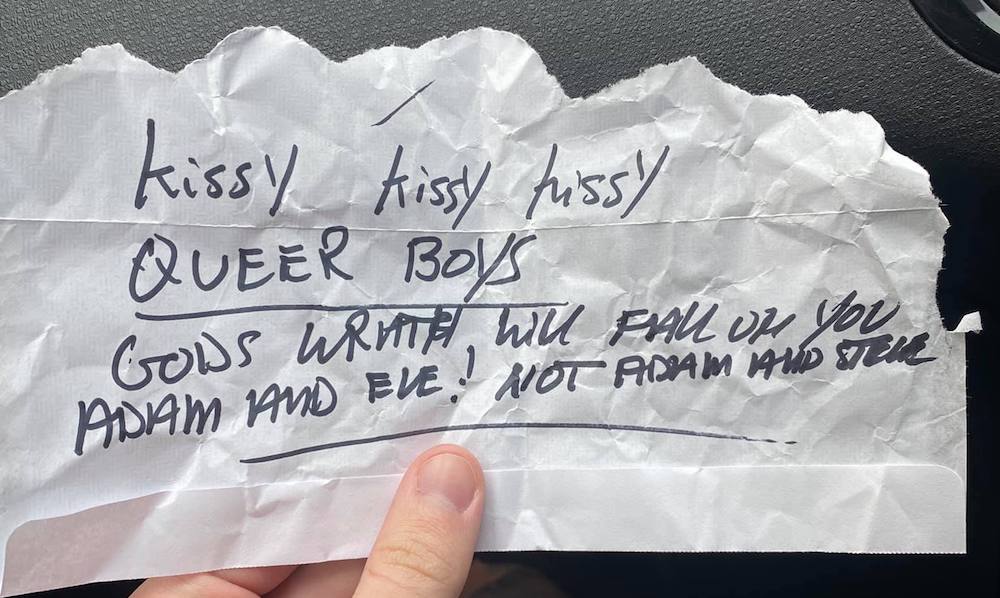 kissy kissy kissy
QUEER BOYS
GODS WRATH, WILL FALL ON YOU
ADAM AND EVE! NOT ADAM AND STEVE